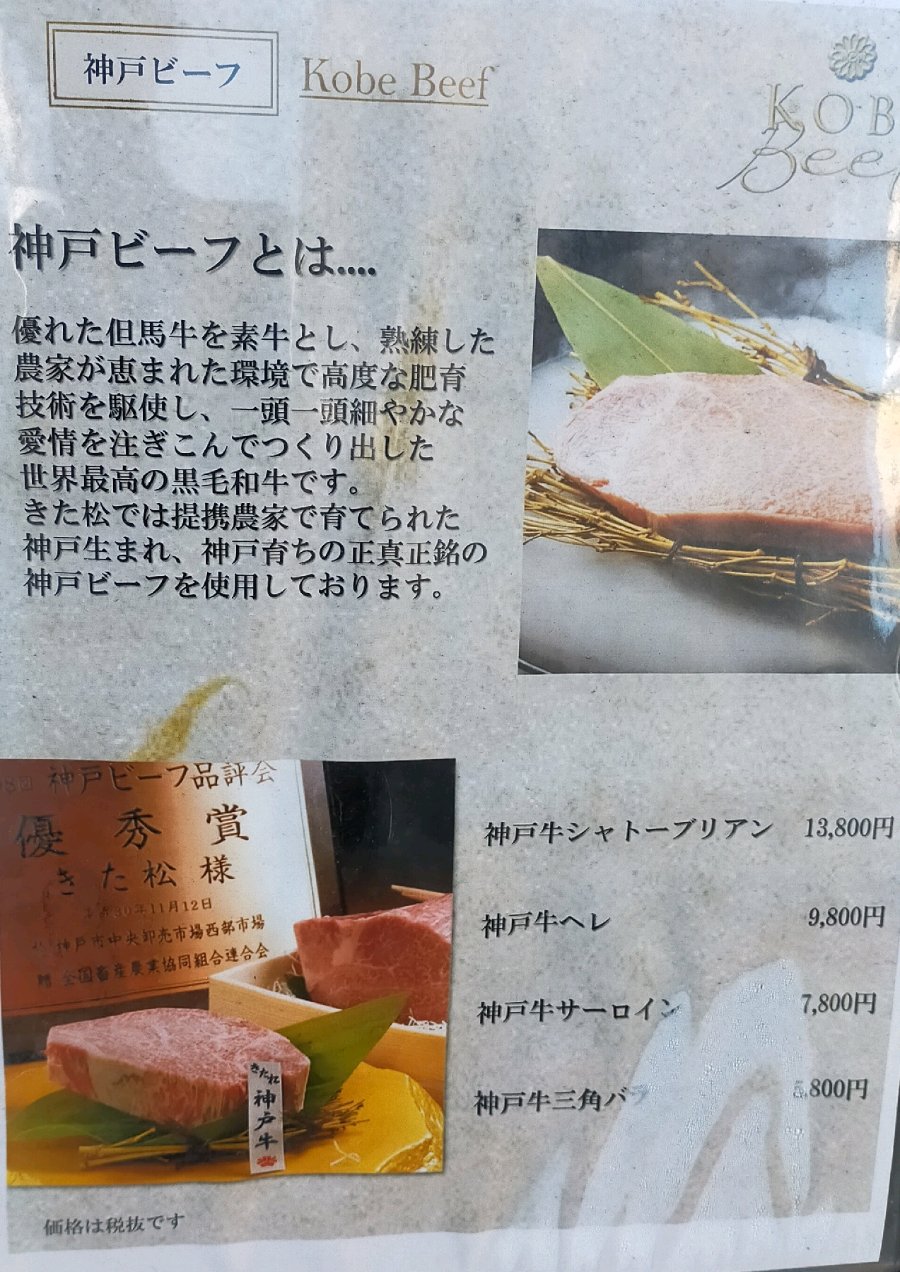 神戸ビーフ
Kobe Beef
KOB
Beef
神戸ビーフとは....
優れた但馬牛を素牛とし、熟練した
農家が恵まれた環境で高度な肥育
技術を駆使し、一頭一頭細やかな
愛情を注ぎこんでつくり出した
世界最高の黒毛和牛です。
きた松では提携農家で育てられた
神戸生まれ、神戸育ちの正真正銘の
神戸ビーフを使用しております。
神戸ビーフ品評会
優秀賞
きた松様
30年11月12日
神戸市中央卸売市場西部市場
贈 全国畜産農業協同組合連合会
きた松
神戸牛
神戸牛シャトーブリアン 13,800円
神戸牛ヘレ 9,800円
神戸牛サーロイン 7,800円
神戸牛三角バラ ,800円
価格は税抜です